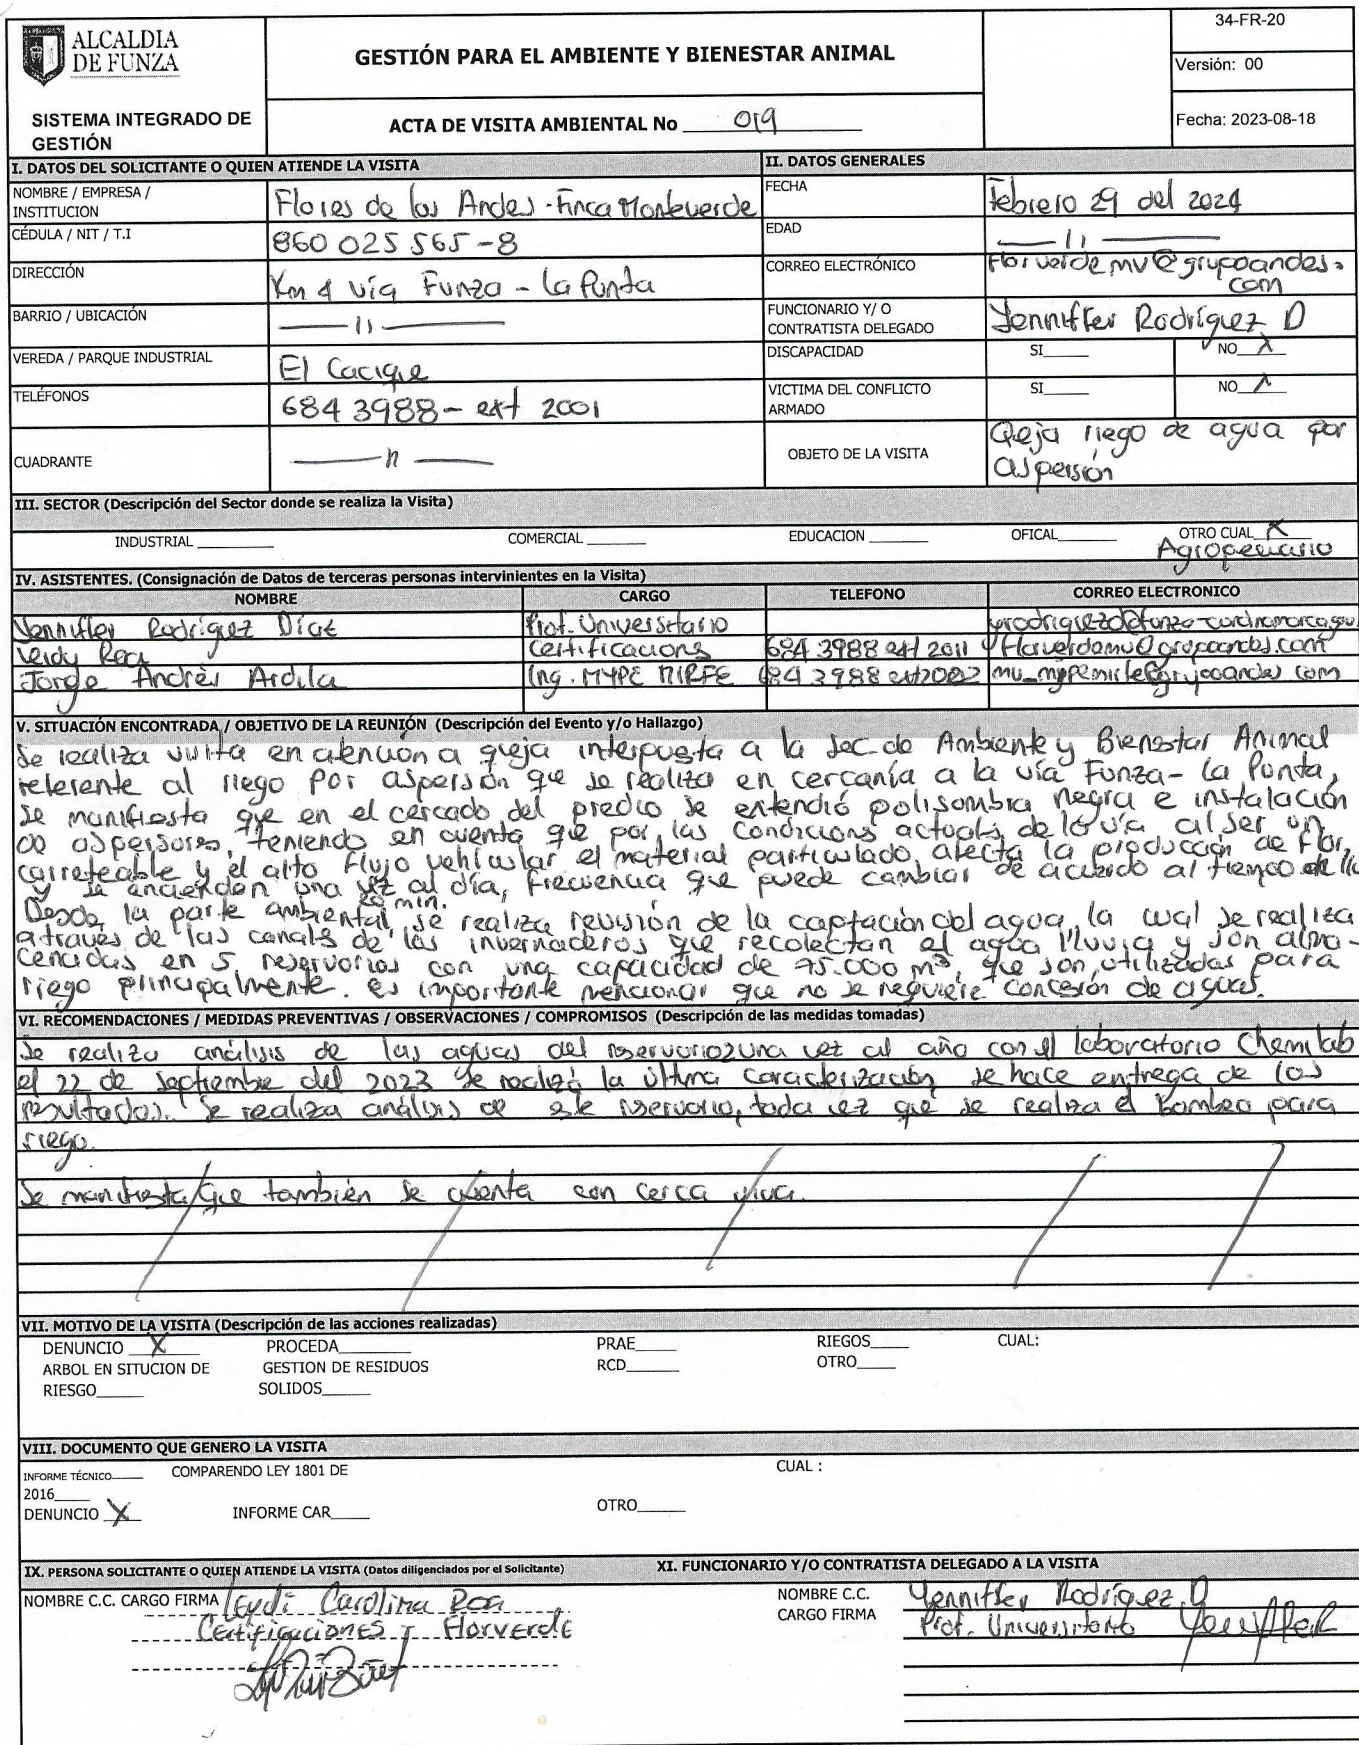 ALCALDIA
DE FUNZA
SISTEMA INTEGRADO DE
GESTIÓN
GESTIÓN PARA EL AMBIENTE Y BIENESTAR ANIMAL
ACTA DE VISITA AMBIENTAL No 019
34-FR-20
Versión: 00
Fecha: 2023-08-18
I. DATOS DEL SOLICITANTE O QUIEN ATIENDE LA VISITA
NOMBRE / EMPRESA /
INSTITUCION Flores de los Andes - Finca Monteverde
CÉDULA / NIT / T.I 860 025 565-8
DIRECCIÓN Km 4 vía Funza - La Punta
BARRIO / UBICACIÓN
VEREDA / PARQUE INDUSTRIAL El Cacique
TELÉFONOS 684 3988 - ext 2001
CUADRANTE
II. DATOS GENERALES
FECHA Febrero 29 del 2024
EDAD
CORREO ELECTRÓNICO Florverdemv@grupoandes.
com
FUNCIONARIO Y/ O
CONTRATISTA DELEGADO Yenniffer Rodríguez D
DISCAPACIDAD SI NO X
VICTIMA DEL CONFLICTO
ARMADO SI NO X
OBJETO DE LA VISITA Queja riego de agua por
aspersión
III. SECTOR (Descripción del Sector donde se realiza la Visita)
INDUSTRIAL COMERCIAL EDUCACION OFICAL OTRO CUAL X
Agropecuario
IV. ASISTENTES. (Consignación de Datos de terceras personas intervinientes en la Visita)
NOMBRE CARGO TELEFONO CORREO ELECTRONICO
Yenniffer Rodríguez Díaz Prof. Universitario
Leidy Roa Certificacions 684 3988 ext 2011 Florverdemv@grupoandes.com
Jorge Andrés Ardila Ing. MYPE MIRFE 684 3988 ext 2022
V. SITUACIÓN ENCONTRADA / OBJETIVO DE LA REUNIÓN (Descripción del Evento y/o Hallazgo)
Se realiza visita en atención a queja interpuesta a la Sec de Ambiente y Bienestar Animal
referente al riego por aspersión que se realiza en cercanía a la vía Funza - La Punta,
se manifiesta que en el cercado del predio se extendió polisombra negra e instalación
de aspersores, teniendo en cuenta que por las condicions actuals de la vía al ser un
carreteable y el alto flujo vehicular el material particulado, afecta la producción de flor,
y se encienden una vez al día, frecuencia que puede cambiar de acuerdo al tiempo de
20 min.
Desde la parte ambiental, se realiza revisión de la captación del agua, la cual se realiza
através de las canals de los invernaderos que recolectan el agua lluvia y son alma-
cenadas en 5 reservorios con una capacidad de 75.000 m³, que son utilizadas para
riego principalmente. es importante mencionar que no se requiere concesión de aguas.
VI. RECOMENDACIONES / MEDIDAS PREVENTIVAS / OBSERVACIONES / COMPROMISOS (Descripción de las medidas tomadas)
Se realiza análisis de las aguas del reservorio 2 una vez al año con el laboratorio Chemilab
el 22 de septiembre del 2023 se realizó la última caracterización, se hace entrega de los
resultados. Se realiza análisis de este reservorio, toda vez que se realiza el bombeo para
riego.
Se manifiesta que también se cuenta con cerca viva.
VII. MOTIVO DE LA VISITA (Descripción de las acciones realizadas)
DENUNCIO X PROCEDA PRAE RIEGOS CUAL:
ARBOL EN SITUCION DE GESTION DE RESIDUOS RCD OTRO
RIESGO SOLIDOS
VIII. DOCUMENTO QUE GENERO LA VISITA
INFORME TÉCNICO COMPARENDO LEY 1801 DE CUAL :
2016
DENUNCIO X INFORME CAR OTRO
IX. PERSONA SOLICITANTE O QUIEN ATIENDE LA VISITA (Datos diligenciados por el Solicitante)
NOMBRE C.C. CARGO FIRMA Leydi Carolina Roa
Certificaciones y Florverde
XI. FUNCIONARIO Y/O CONTRATISTA DELEGADO A LA VISITA
NOMBRE C.C. Yenniffer Rodríguez D
CARGO FIRMA Prof. Universitario